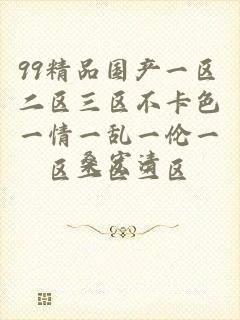 99精品国产一区
二区三区不卡色
一情一乱一伦一
区二区三区